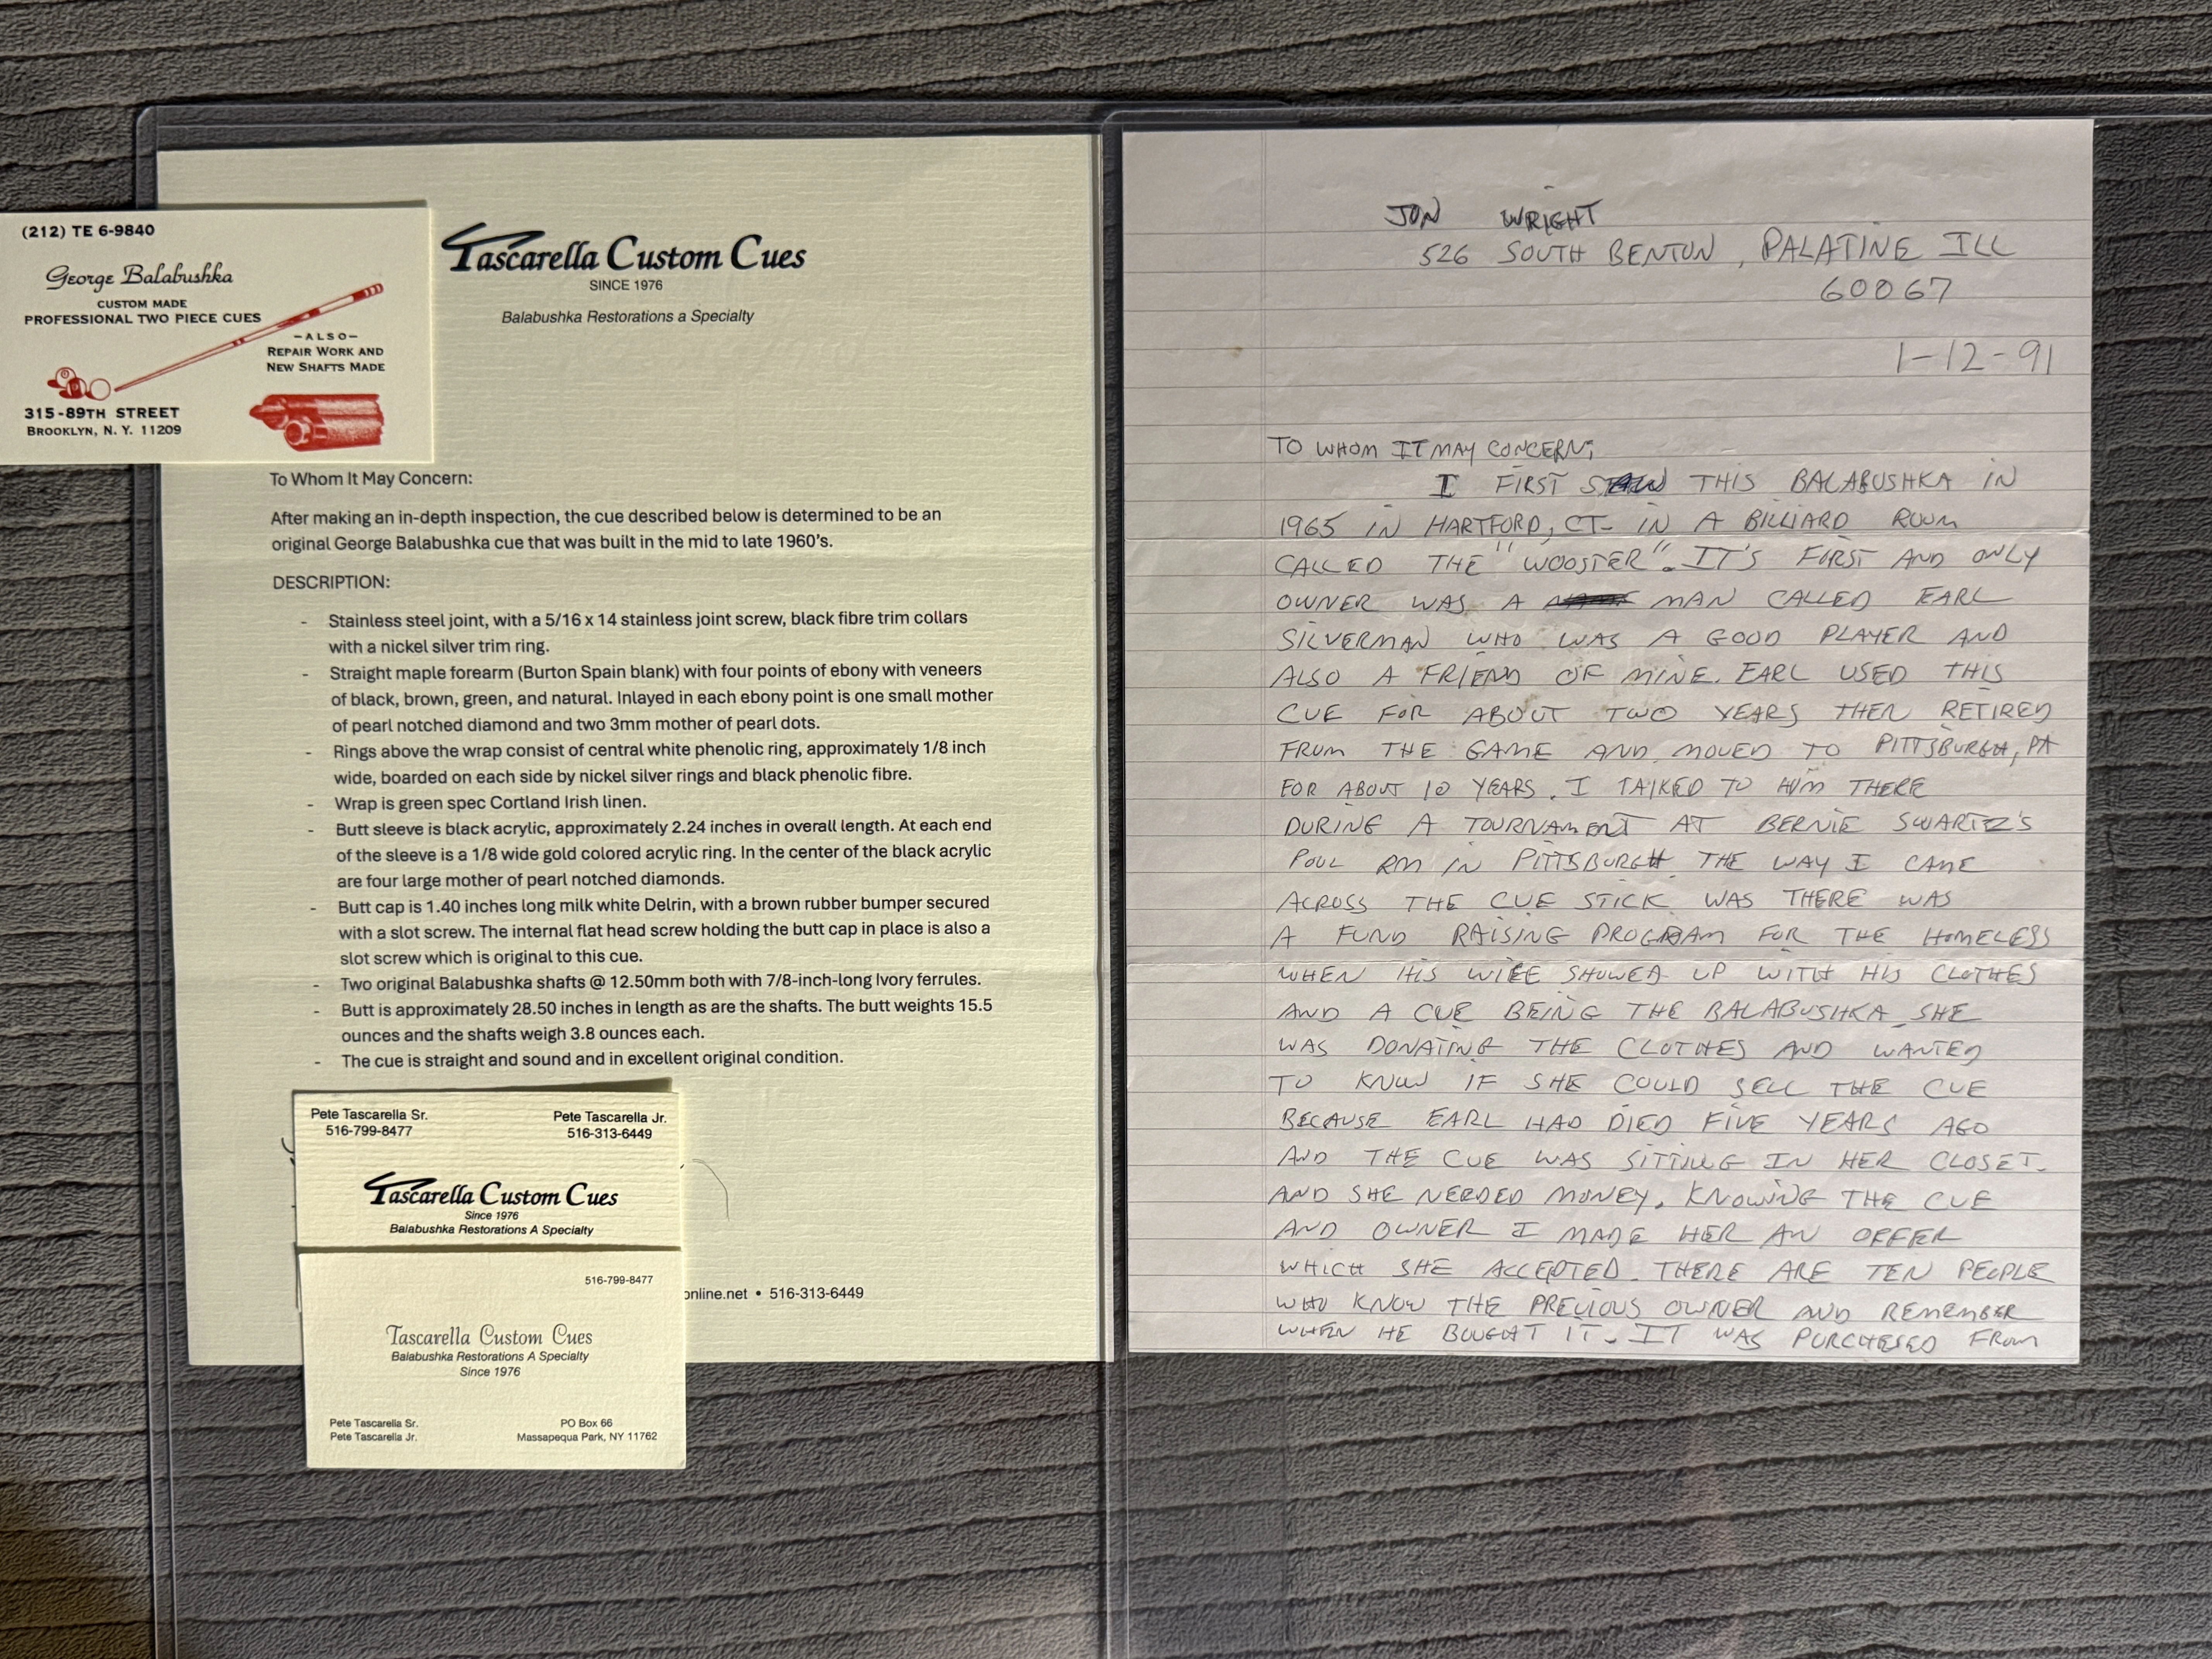 (212) TE 6-9840
George Balabushka
CUSTOM MADE
PROFESSIONAL TWO PIECE CUES
-ALSO-
REPAIR WORK AND
NEW SHAFTS MADE
315-89TH STREET
BROOKLYN, N. Y. 11209
Tascarella Custom Cues
SINCE 1976
Balabushka Restorations a Specialty
To Whom It May Concern:
After making an in-depth inspection, the cue described below is determined to be an
original George Balabushka cue that was built in the mid to late 1960's.
DESCRIPTION:
- Stainless steel joint, with a 5/16 x 14 stainless joint screw, black fibre trim collars
with a nickel silver trim ring.
- Straight maple forearm (Burton Spain blank) with four points of ebony with veneers
of black, brown, green, and natural. Inlayed in each ebony point is one small mother
of pearl notched diamond and two 3mm mother of pearl dots.
- Rings above the wrap consist of central white phenolic ring, approximately 1/8 inch
wide, boarded on each side by nickel silver rings and black phenolic fibre.
- Wrap is green spec Cortland Irish linen.
- Butt sleeve is black acrylic, approximately 2.24 inches in overall length. At each end
of the sleeve is a 1/8 wide gold colored acrylic ring. In the center of the black acrylic
are four large mother of pearl notched diamonds.
- Butt cap is 1.40 inches long milk white Delrin, with a brown rubber bumper secured
with a slot screw. The internal flat head screw holding the butt cap in place is also a
slot screw which is original to this cue.
- Two original Balabushka shafts @ 12.50mm both with 7/8-inch-long Ivory ferrules.
- Butt is approximately 28.50 inches in length as are the shafts. The butt weights 15.5
ounces and the shafts weigh 3.8 ounces each.
- The cue is straight and sound and in excellent original condition.
Pete Tascarella Sr. Pete Tascarella Jr.
516-799-8477 516-313-6449
Tascarella Custom Cues
Since 1976
Balabushka Restorations A Specialty
online.net • 516-313-6449
516-799-8477
Tascarella Custom Cues
Balabushka Restorations A Specialty
Since 1976
Pete Tascarella Sr. PO Box 66
Pete Tascarella Jr. Massapequa Park, NY 11762
JON WRIGHT
526 SOUTH BENTON, PALATINE ILL
60067
1-12-91
TO WHOM IT MAY CONCERN;
I FIRST SAW THIS BALABUSHKA IN
1965 IN HARTFORD, CT. IN A BILLIARD ROOM
CALLED THE "WOOSTER". IT'S FIRST AND ONLY
OWNER WAS A MAN CALLED EARL
SILVERMAN WHO WAS A GOOD PLAYER AND
ALSO A FRIEND OF MINE. EARL USED THIS
CUE FOR ABOUT TWO YEARS THEN RETIRED
FROM THE GAME AND MOVED TO PITTSBURGH, PA
FOR ABOUT 10 YEARS. I TALKED TO HIM THERE
DURING A TOURNAMENT AT BERNIE SWARTZ'S
POOL RM IN PITTSBURGH. THE WAY I CAME
ACROSS THE CUE STICK WAS THERE WAS
A FUND RAISING PROGRAM FOR THE HOMELESS
WHEN HIS WIFE SHOWED UP WITH HIS CLOTHES
AND A CUE BEING THE BALABUSHKA. SHE
WAS DONATING THE CLOTHES AND WANTED
TO KNOW IF SHE COULD SELL THE CUE
BECAUSE EARL HAD DIED FIVE YEARS AGO
AND THE CUE WAS SITTING IN HER CLOSET.
AND SHE NEEDED MONEY. KNOWING THE CUE
AND OWNER I MADE HER AN OFFER
WHICH SHE ACCEPTED. THERE ARE TEN PEOPLE
WHO KNOW THE PREVIOUS OWNER AND REMEMBER
WHEN HE BOUGHT IT. IT WAS PURCHESED FROM